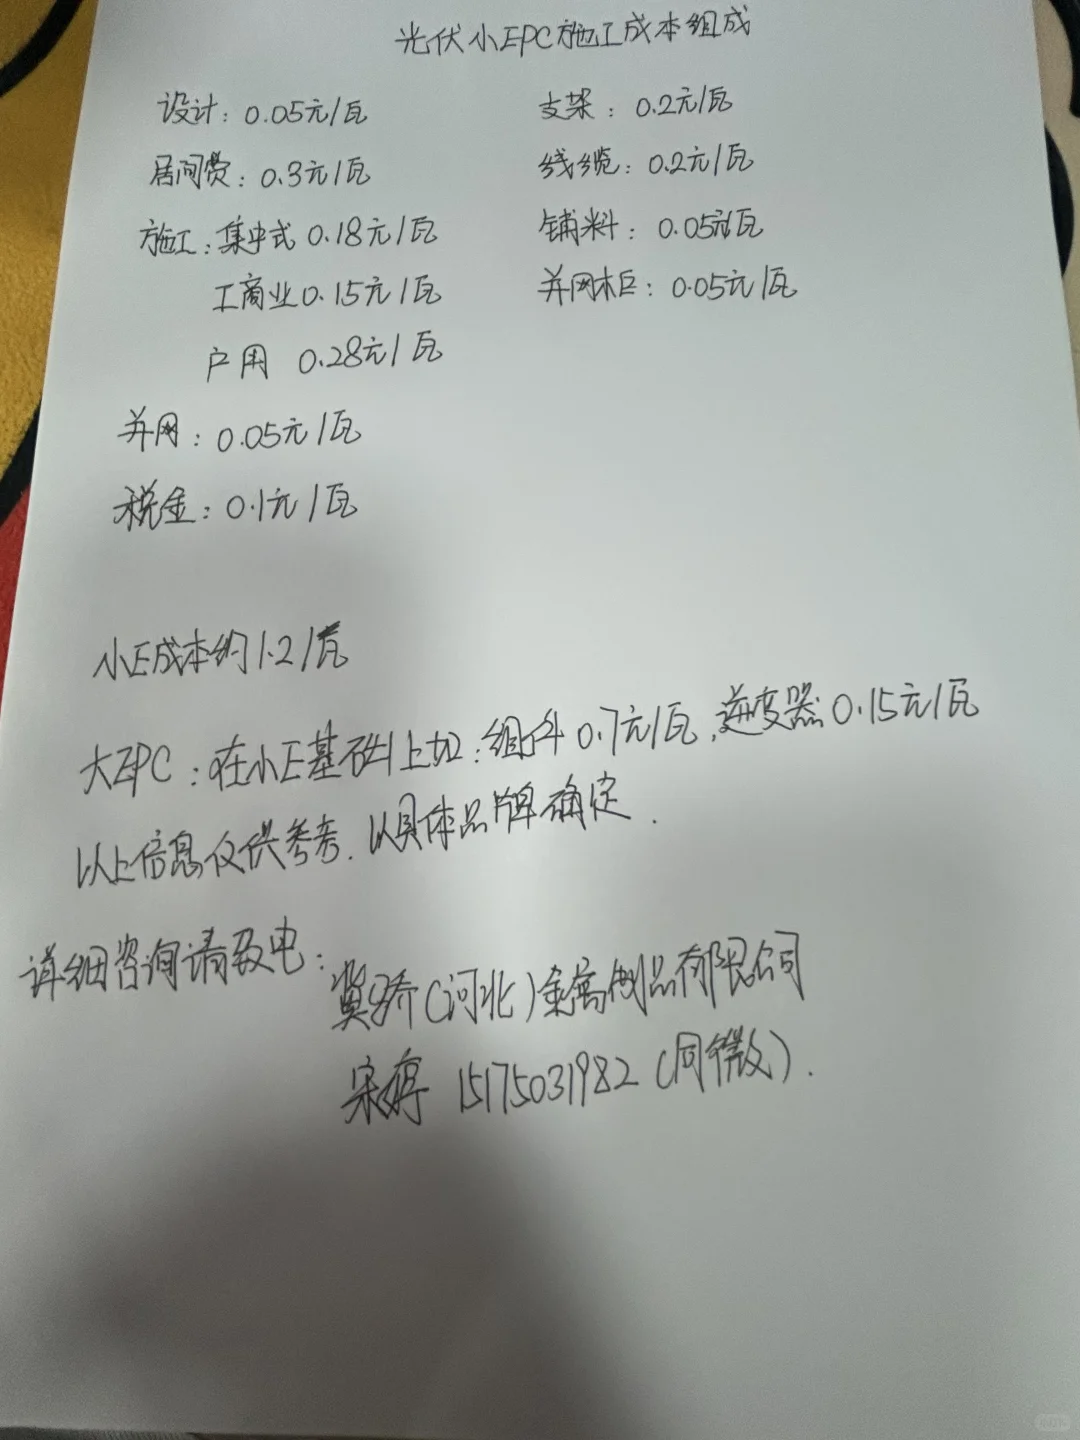 光伏小EPC施工成本组成
设计：0.05元/瓦
居间费：0.3元/瓦
施工：集中式 0.18元/瓦
工商业 0.15元/瓦
户用 0.28元/瓦
并网：0.05元/瓦
税金：0.1元/瓦
支架：0.2元/瓦
线缆：0.2元/瓦
铺料：0.05元/瓦
并网柜：0.05元/瓦
小E成本约1.2/瓦
大EPC：在小E基础上加：组件0.7元/瓦，逆变器0.15元/瓦
以上信息仅供参考．以具体品牌确定．
详细咨询请致电：
冀骄（河北）金属制品有限公司
宋婷 15175031982（同微）．